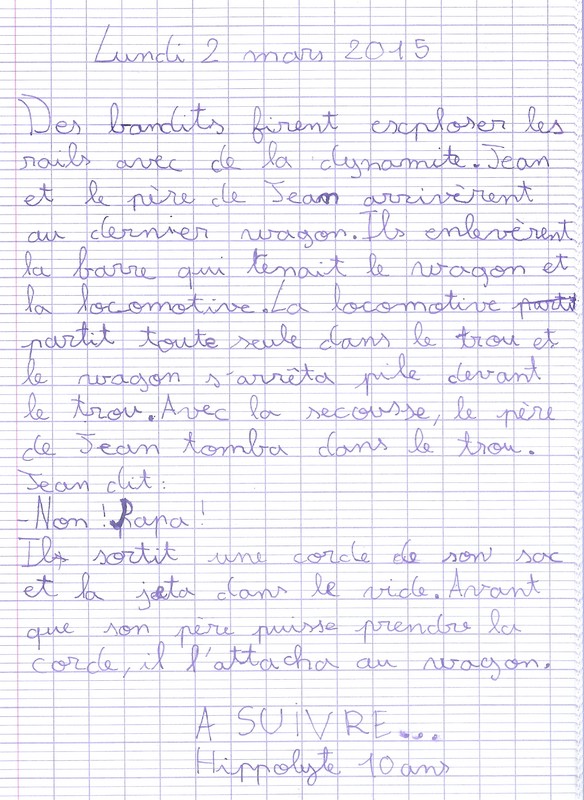 Lundi 2 mars 2015
Des bandits firent exploser les
rails avec de la dynamite. Jean
et le père de Jean arrivèrent
au dernier wagon. Ils enlevèrent
la barre qui tenait le wagon et
la locomotive. La locomotive partit
partit toute seule dans le trou et
le wagon s'arrêta pile devant
le trou. Avec la secousse, le père
de Jean tomba dans le trou.
Jean dit :
- Non ! Papa !
Il sortit une corde de son sac
et la jeta dans le vide. Avant
que son père puisse prendre la
corde, il l'attacha au wagon.
A SUIVRE...
Hippolyte 10 ans